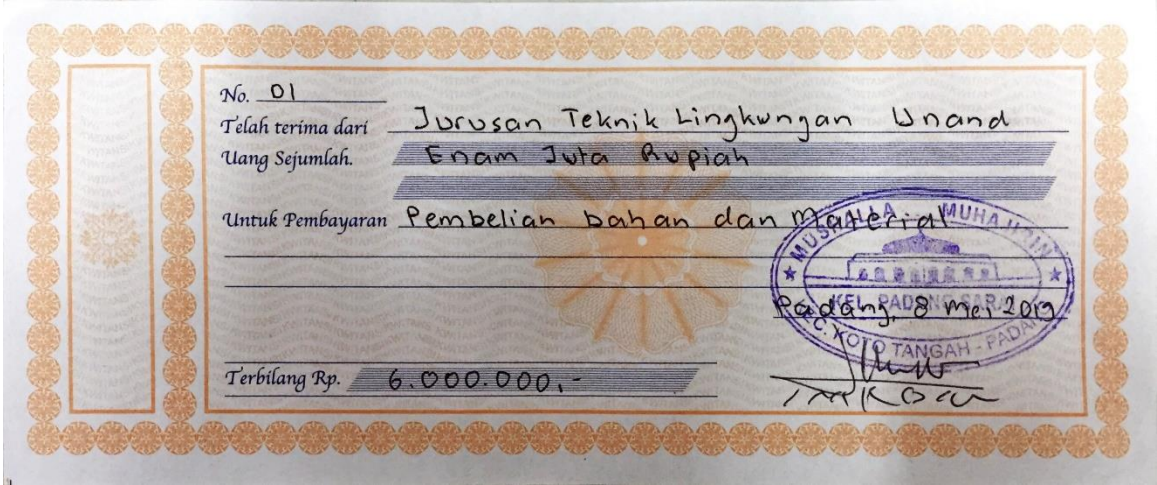 No. 01
Telah terima dari Jurusan Teknik Lingkungan Unand
Uang Sejumlah. Enam Juta Rupiah
Untuk Pembayaran Pembelian bahan dan Material
MUSHALLA MUHAJIRIN
KEL. PADANG SARAI
Padang, 8 Mei 2019
KEC. KOTO TANGAH - PADANG
Terbilang Rp. 6.000.000,-